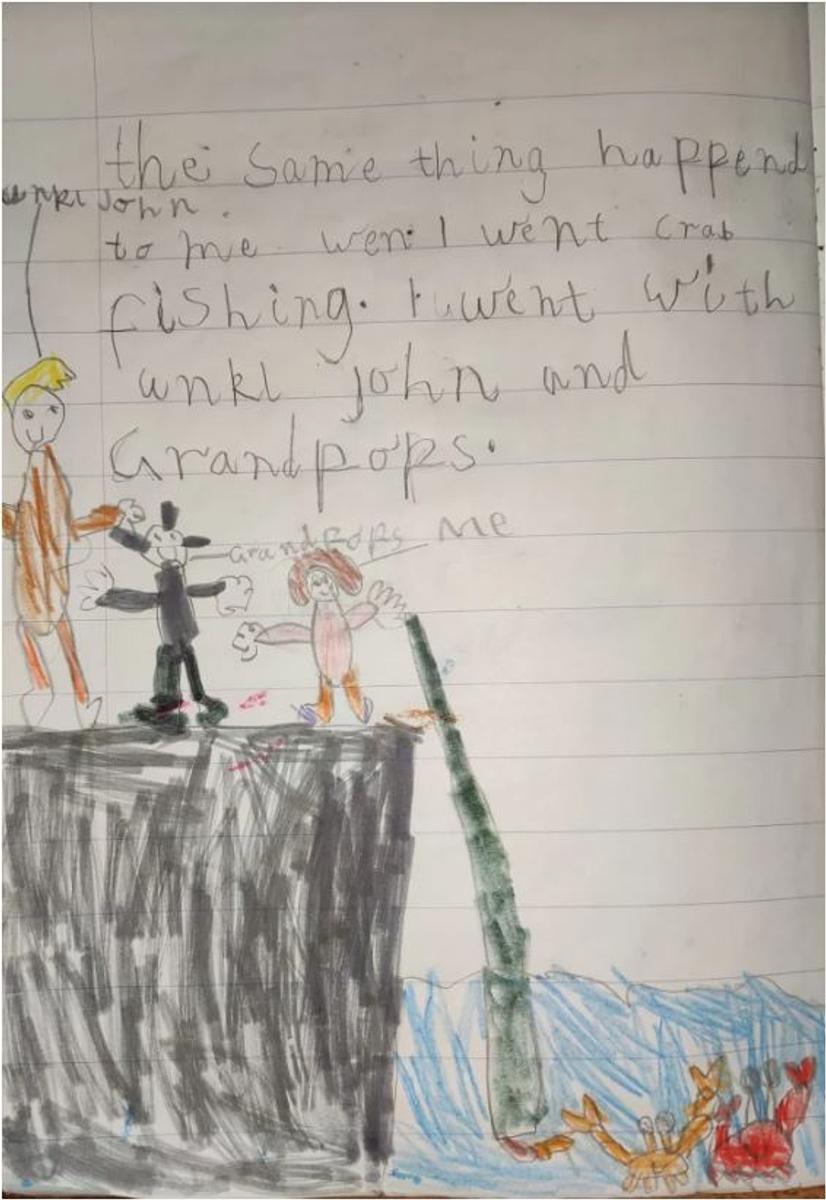 the same thing happend
unkl John.
to me wen I went crab
fishing. I went with
unkl john and
Grandpops.
Grandpops
Me